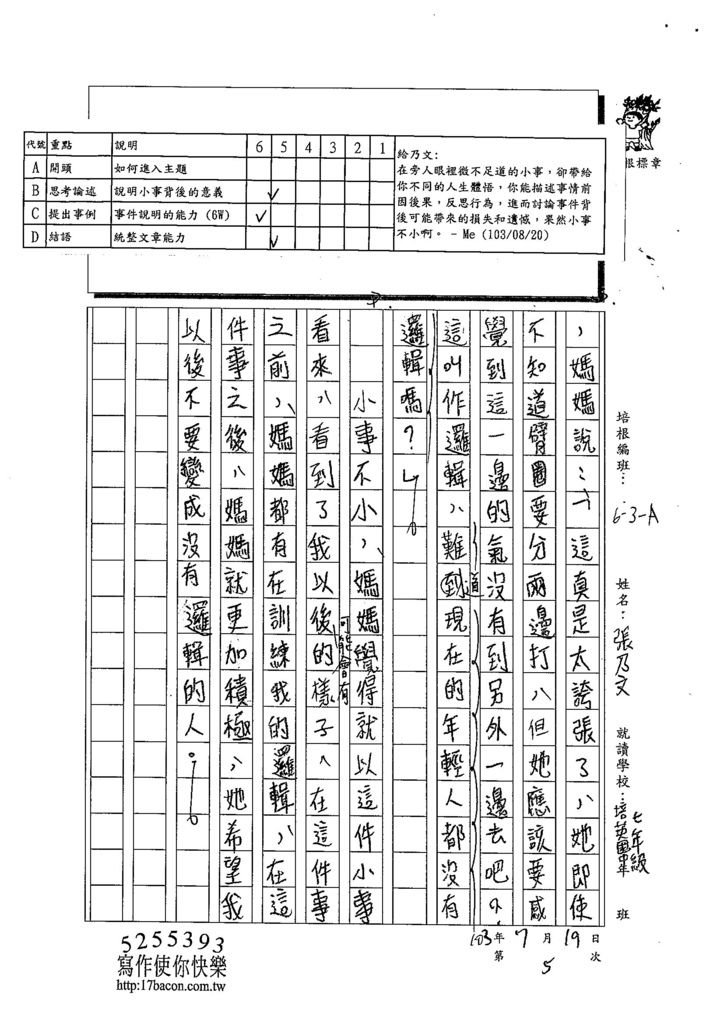 代號 重點 說明 6 5 4 3 2 1
A 開頭 如何進入主題
B 思考論述 說明小事背後的意義 ✓
C 提出事例 事件說明的能力 (6W) ✓
D 結語 統整文章能力 ✓
給乃文:
在旁人眼裡微不足道的小事,卻帶給
你不同的人生體悟,你能描述事情前
因後果,反思行為,進而討論事件背
後可能帶來的損失和遺憾,果然小事
不小啊。 - Me (103/08/20)
根標章
培根編班:
6-3-A
姓名:張乃文
就讀學校:培英國中 七年級 班
,媽媽說:「這真是太誇張了,她即使
不知道臂圍要分兩邊打,但她應該要感
覺到這一邊的氣分沒有到另外一邊去吧?
這叫作邏輯,難道現在的年輕人都沒有
邏輯嗎?」
小事不小,媽媽覺得就以這件小事
看來,看到了我以後可能會有的樣子,在這件事
之前,媽媽都有在訓練我的邏輯,在這
件事之後,媽媽就更加積極,她希望我
以後不要變成沒有邏輯的人。
103年7月19日
第5次
5255393
寫作使你快樂
http:17bacon.com.tw